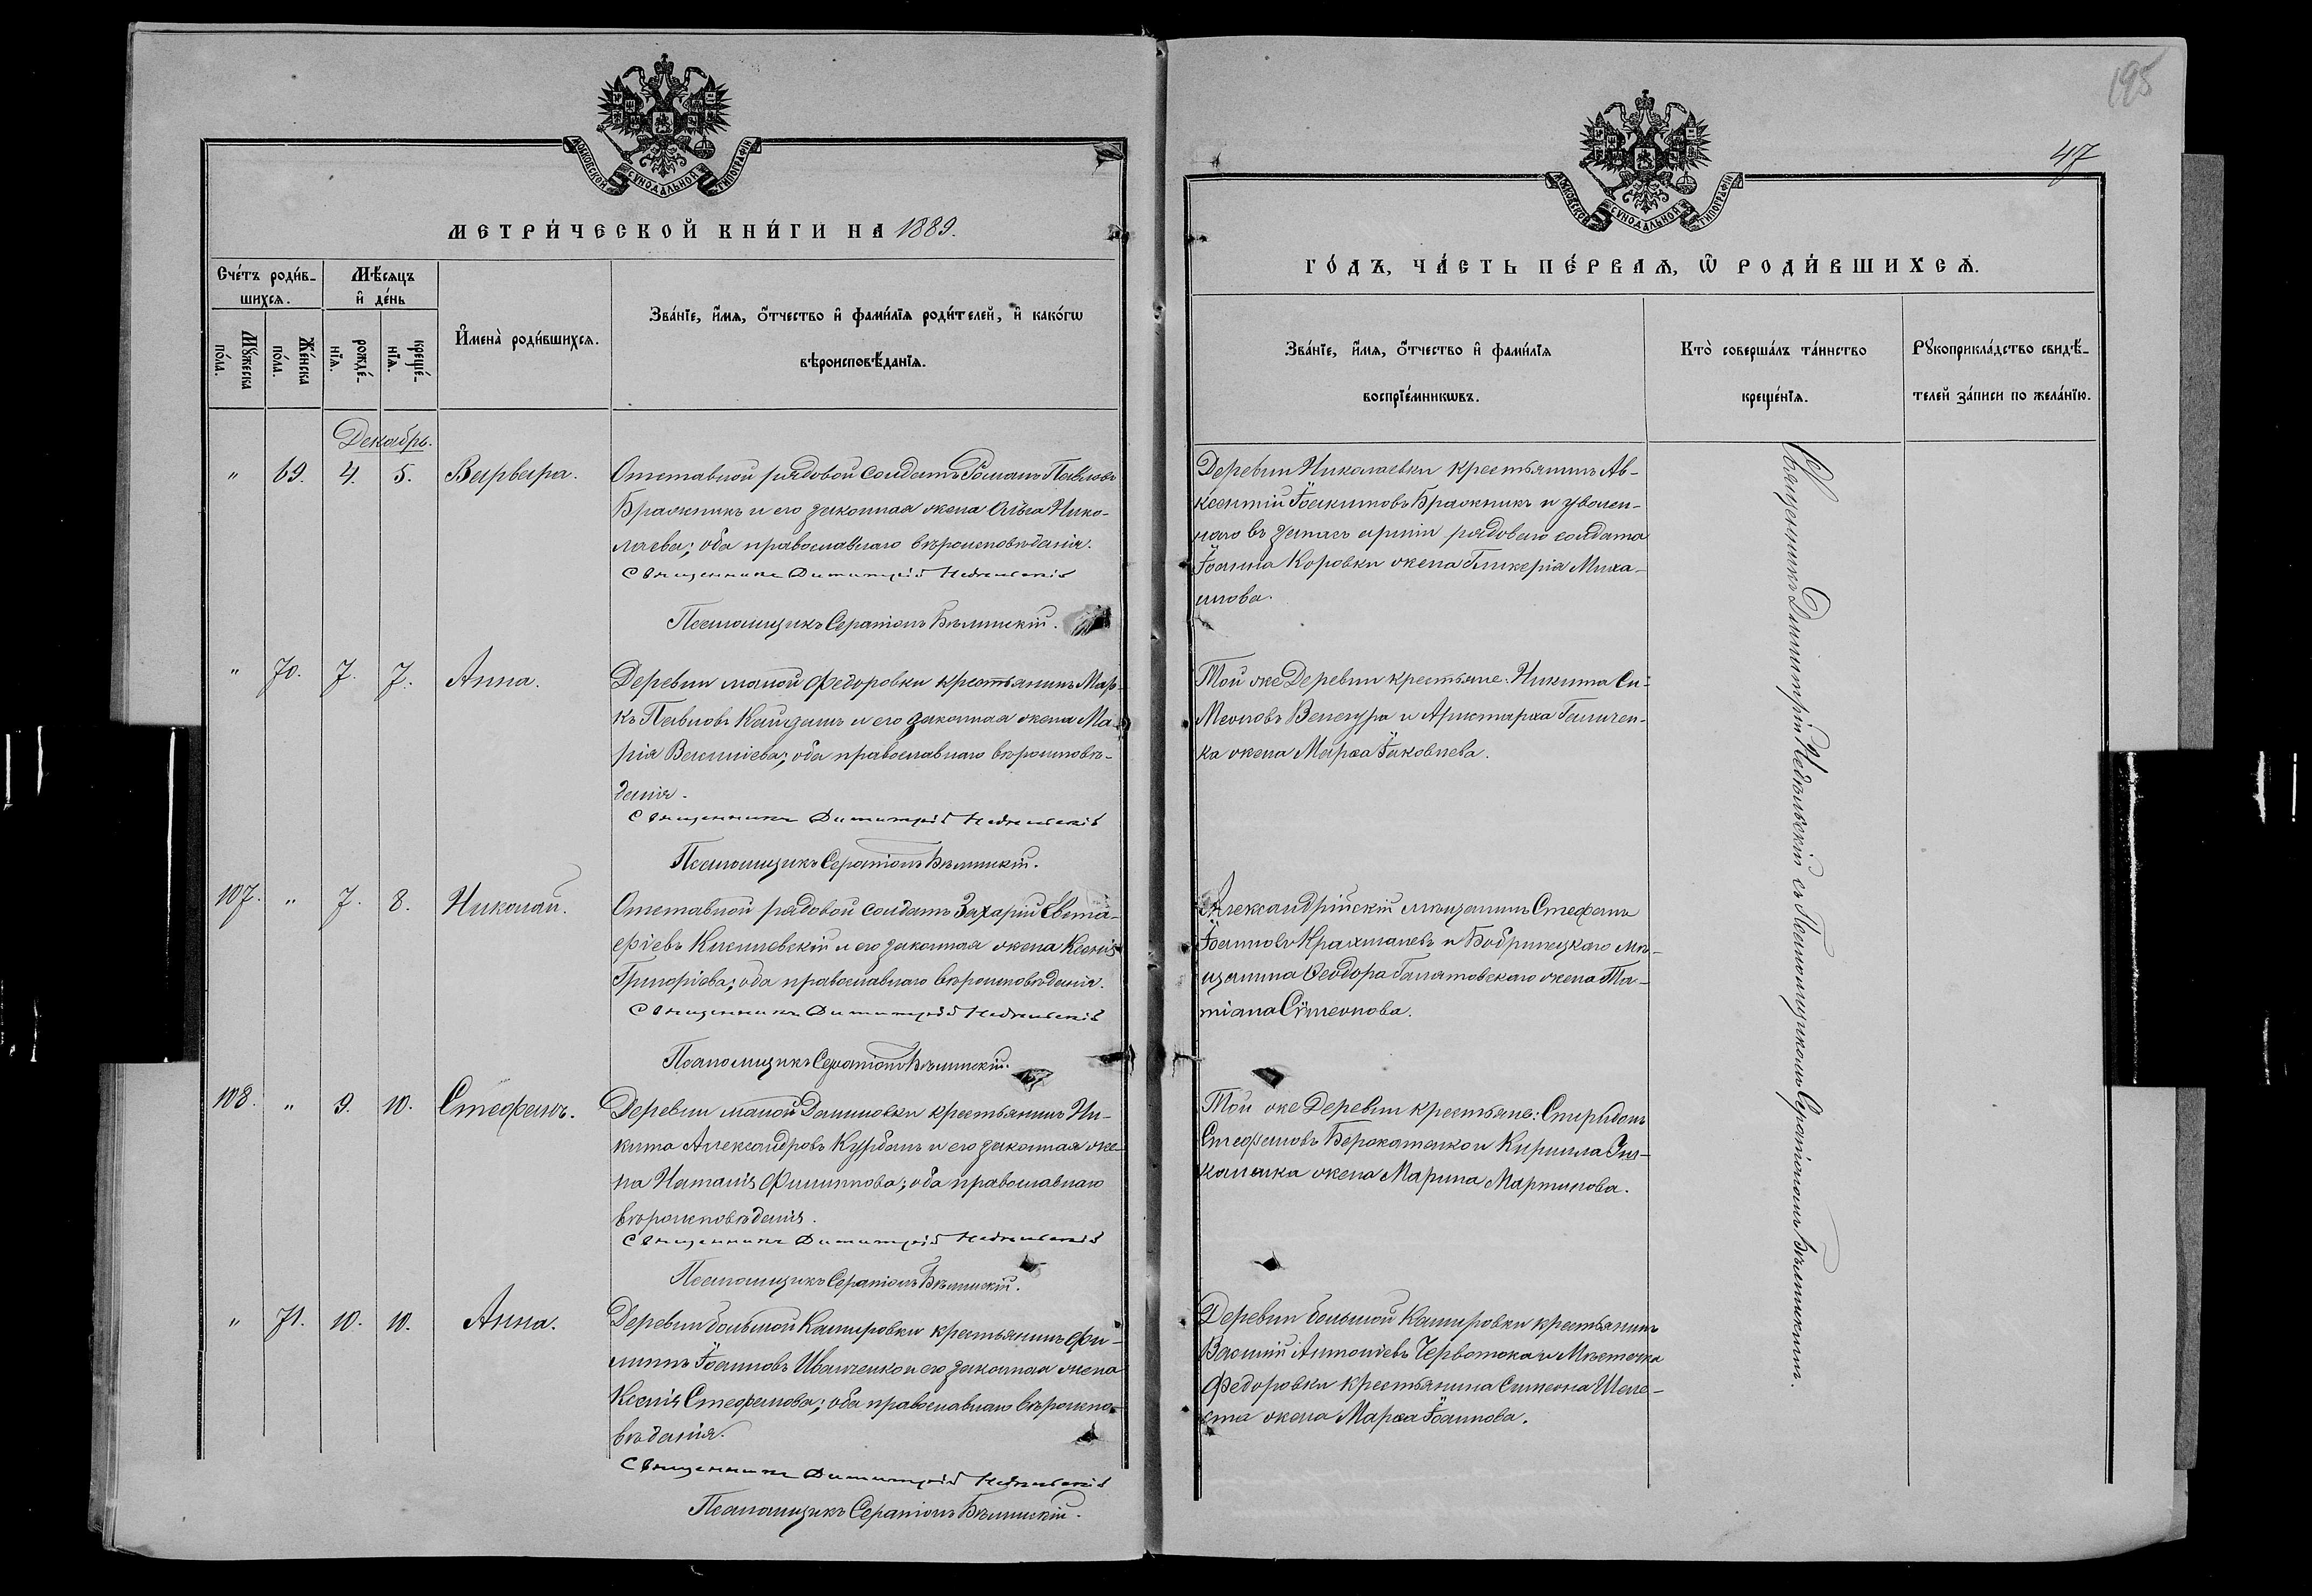 195
47
МОСКОВСКОЙ СѴНОДАЛЬНОЙ ТИПОГРАФІИ
МЕТРИ́ЧЕСКОЙ КНИ́ГИ НА 1889.
Сче́тъ роди́в-
шихсѧ.
Мѣ́сяцъ
и҆ де́нь
Мꙋ́жеска по́ла.
Же́нска по́ла.
рожде́-нїѧ.
креще́-нїѧ.
И҆мена̀ роди́вшихсѧ.
Зва́нїе, и҆́мѧ, ѻ҆́тчество и҆ фами́лїѧ роди́телей, и҆ како́гѡ
вѣроисповѣ́данїѧ.
Декабрь.
" 69. 4. 5. Варвара.
Отставной рядовой солдатъ Романъ Павловъ
Бражникъ и его законная жена Ольга Нико-
лаева; оба православнаго вѣроисповѣданія.
Священникъ Димитрій Недѣльскій
Псаломщикъ Серапіонъ Бѣлинскій.
" 70. 7. 7. Анна.
Деревни малой Федоровки крестьянинъ Мар-
къ Павловъ Кайдашъ и его законная жена Ма-
рія Василіева; оба православнаго вѣроисповѣ-
данія.
Священникъ Димитрій Недѣльскій
Псаломщикъ Серапіонъ Бѣлинскій.
107. " 7. 8. Николай.
Отставной рядовой солдатъ Захарій Евста-
фіевъ Кисилевскій и его законная жена Ксенія
Григоріева; оба православнаго вѣроисповѣданія.
Священникъ Димитрій Недѣльскій
Псаломщикъ Серапіонъ Бѣлинскій.
108. " 9. 10. Стефанъ.
Деревни малой Даниловки крестьянинъ Ни-
кита Александровъ Курбанъ и его законная же-
на Наталія Филиппова; оба православнаго
вѣроисповѣданія.
Священникъ Димитрій Недѣльскій
Псаломщикъ Серапіонъ Бѣлинскій.
" 71. 10. 10. Анна.
Деревни большой Камировки крестьянинъ Фи-
липпъ Іоанновъ Иванченко и его законная жена
Ксенія Стефанова; оба православнаго вѣроиспо-
вѣданія.
Священникъ Димитрій Недѣльскій
Псаломщикъ Серапіонъ Бѣлинскій.
МОСКОВСКОЙ СѴНОДАЛЬНОЙ ТИПОГРАФІИ
ГО́ДЪ, ЧА́СТЬ ПЕ́РВАѦ, Ѡ҆ РОДИ́ВШИХСѦ.
Зва́нїе, и҆́мѧ, ѻ҆́тчество и҆ фами́лїѧ
воспрїе́мникѡвъ.
Кто̀ соверша́лъ та́инство
креще́нїѧ.
Рꙋкоприкла́дство свидѣ́-
телей за́писи по жела́нїю.
Деревни Николаевки крестьянинъ Ав-
ксентій Іоакимовъ Бражникъ и уволен-
наго въ запасъ арміи рядоваго солдата
Іоанна Коровки жена Гликерія Миха-
илова.
Той же Деревни крестьяне: Никита Си-
меоновъ Венгура и Аристарха Галичен-
ка жена Марѳа Іаковлева.
Александрійскій мѣщанинъ Стефанъ
Іоанновъ Крахмалевъ и Бобринецкаго мѣ-
щанина Ѳеодора Галятовскаго жена Та-
тіана Сѵмеонова.
Той же Деревни крестьяне: Спиридонъ
Стефановъ Кирилла
жена Марина Мартинова.
Деревни большой Камировки крестьянинъ
Василій Антоніевъ Червотока и Мѣстечка
Федоровки крестьянина Симеона Шеле-
ста жена Марѳа Іоаннова.
Священникъ Димитрій Недѣльскій съ Псаломщикомъ Серапіономъ Бѣлинскимъ.